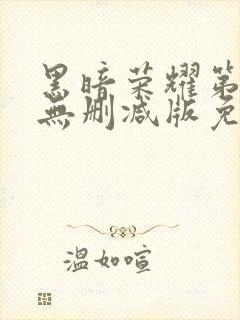 黑暗荣耀第
無删减版免
溫如喧